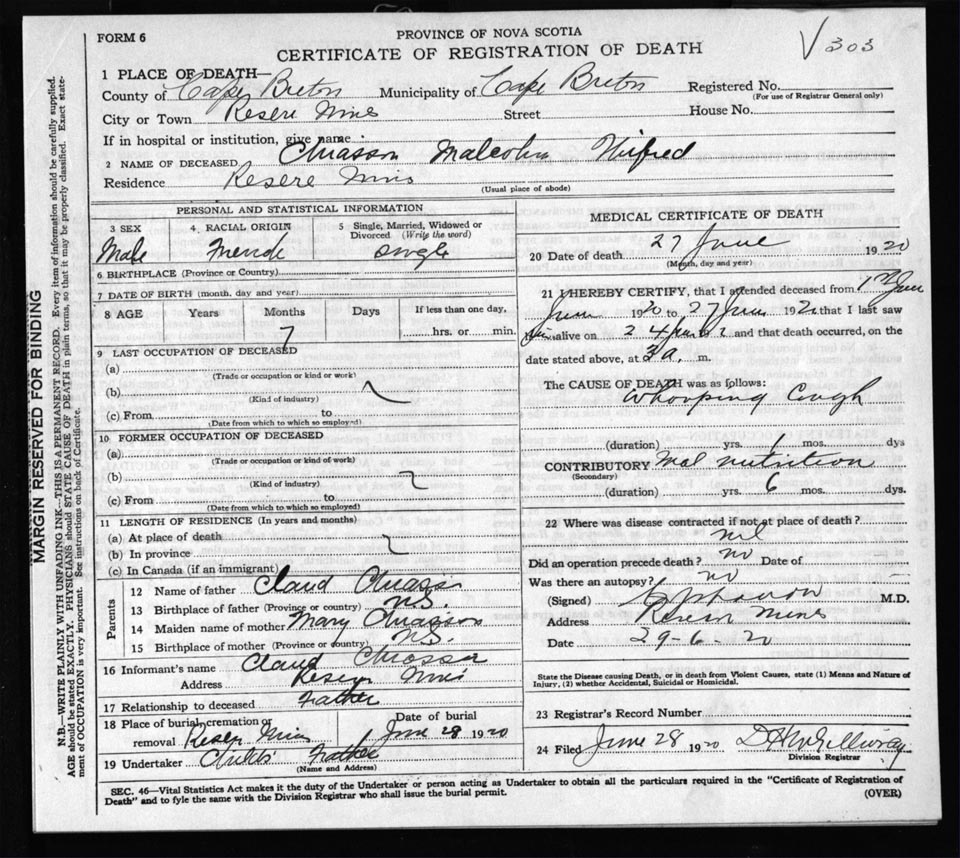 FORM 6
PROVINCE OF NOVA SCOTIA
CERTIFICATE OF REGISTRATION OF DEATH
V 303
1 PLACE OF DEATH—
County of Cape Breton Municipality of Cape Breton Registered No.
(For use of Registrar General only)
City or Town Resere Mines Street House No.
If in hospital or institution, give name
2 NAME OF DECEASED Chiasson Malcolm Wifred
Residence Resere Mines
(Usual place of abode)
PERSONAL AND STATISTICAL INFORMATION
3 SEX 4. RACIAL ORIGIN 5 Single, Married, Widowed or Divorced (Write the word)
Male French Single
6 BIRTHPLACE (Province or Country)
7 DATE OF BIRTH (month, day and year)
8 AGE Years Months Days If less than one day,
7 hrs. or min.
9 LAST OCCUPATION OF DECEASED
(a)
(Trade or occupation or kind or work)
(b)
(Kind of industry)
(c) From to
(Date from which to which so employed)
10 FORMER OCCUPATION OF DECEASED
(a)
(Trade or occupation or kind of work)
(b)
(Kind of industry)
(c) From to
(Date from which to which so employed)
11 LENGTH OF RESIDENCE (In years and months)
(a) At place of death
(b) In province
(c) In Canada (if an immigrant)
Parents
12 Name of father Claud Chiasson
13 Birthplace of father (Province or country) N.S.
14 Maiden name of mother Mary Chiasson
15 Birthplace of mother (Province or country) N.S.
16 Informant's name Claud Chiasson
Address Reserve Mines
17 Relationship to deceased Father
18 Place of burial, cremation or removal Reserve Mines Date of burial June 28 1920
19 Undertaker Childs Father
(Name and Address)
MEDICAL CERTIFICATE OF DEATH
20 Date of death 27 June 1920
(Month, day and year)
21 I HEREBY CERTIFY, that I attended deceased from 1st June
June 1920 to 27 June 192 that I last saw
him alive on 24 June 192 and that death occurred, on the
date stated above, at 3 a. m.
The CAUSE OF DEATH was as follows:
Whooping Cough
(duration) yrs. 1 mos. dys
CONTRIBUTORY Mal nutrition
(Secondary)
(duration) yrs. 6 mos. dys.
22 Where was disease contracted if not at place of death?
nil
Did an operation precede death? no Date of
Was there an autopsy? no
(Signed) M.D.
Address Reserve Mines
Date 29-6-20
State the Disease causing Death, or in death from Violent Causes, state (1) Means and Nature of
Injury, (2) whether Accidental, Suicidal or Homicidal.
23 Registrar's Record Number
24 Filed June 28 1920 D H McGillivray
Division Registrar
SEC. 46—Vital Statistics Act makes it the duty of the Undertaker or person acting as Undertaker to obtain all the particulars required in the "Certificate of Registration of
Death" and to fyle the same with the Division Registrar who shall issue the burial permit. (OVER)
MARGIN RESERVED FOR BINDING
N.B.—WRITE PLAINLY WITH UNFADING INK—THIS IS A PERMANENT RECORD. Every item of information should be carefully supplied.
AGE should be stated EXACTLY. PHYSICIANS should STATE CAUSE OF DEATH in plain terms, so that it may be properly classified. Exact state-
ment of OCCUPATION is very important. See instructions on back of Certificate.